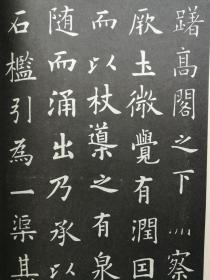 躇高閣之下察
厥土微覺有潤因
而以杖導之有泉
随而涌出乃承以
石檻引為一渠其